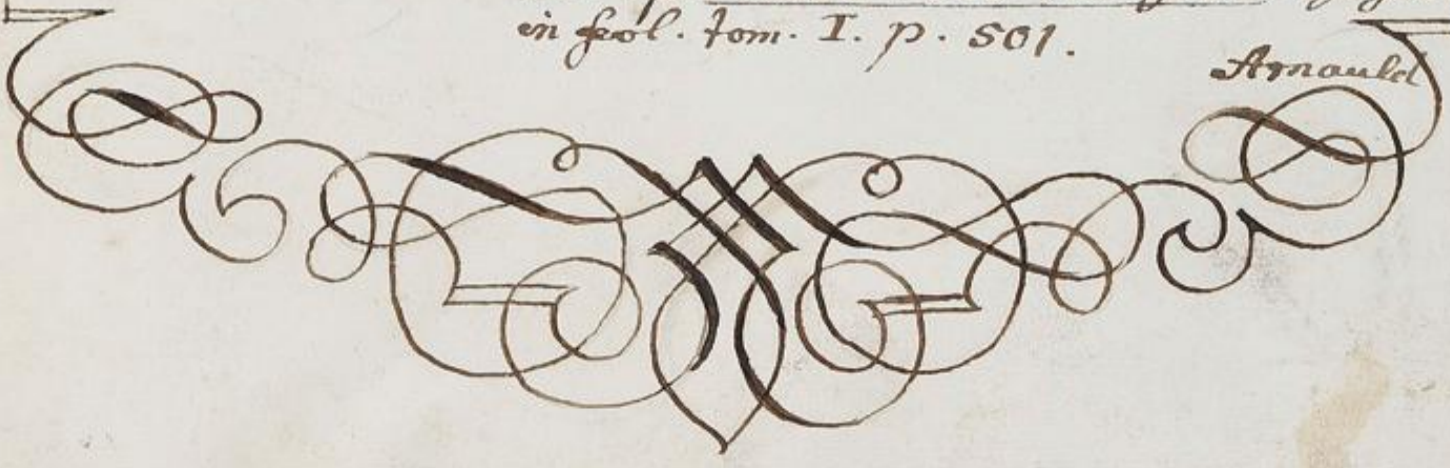 in feol. tom. I. p. 501.
Arnauld